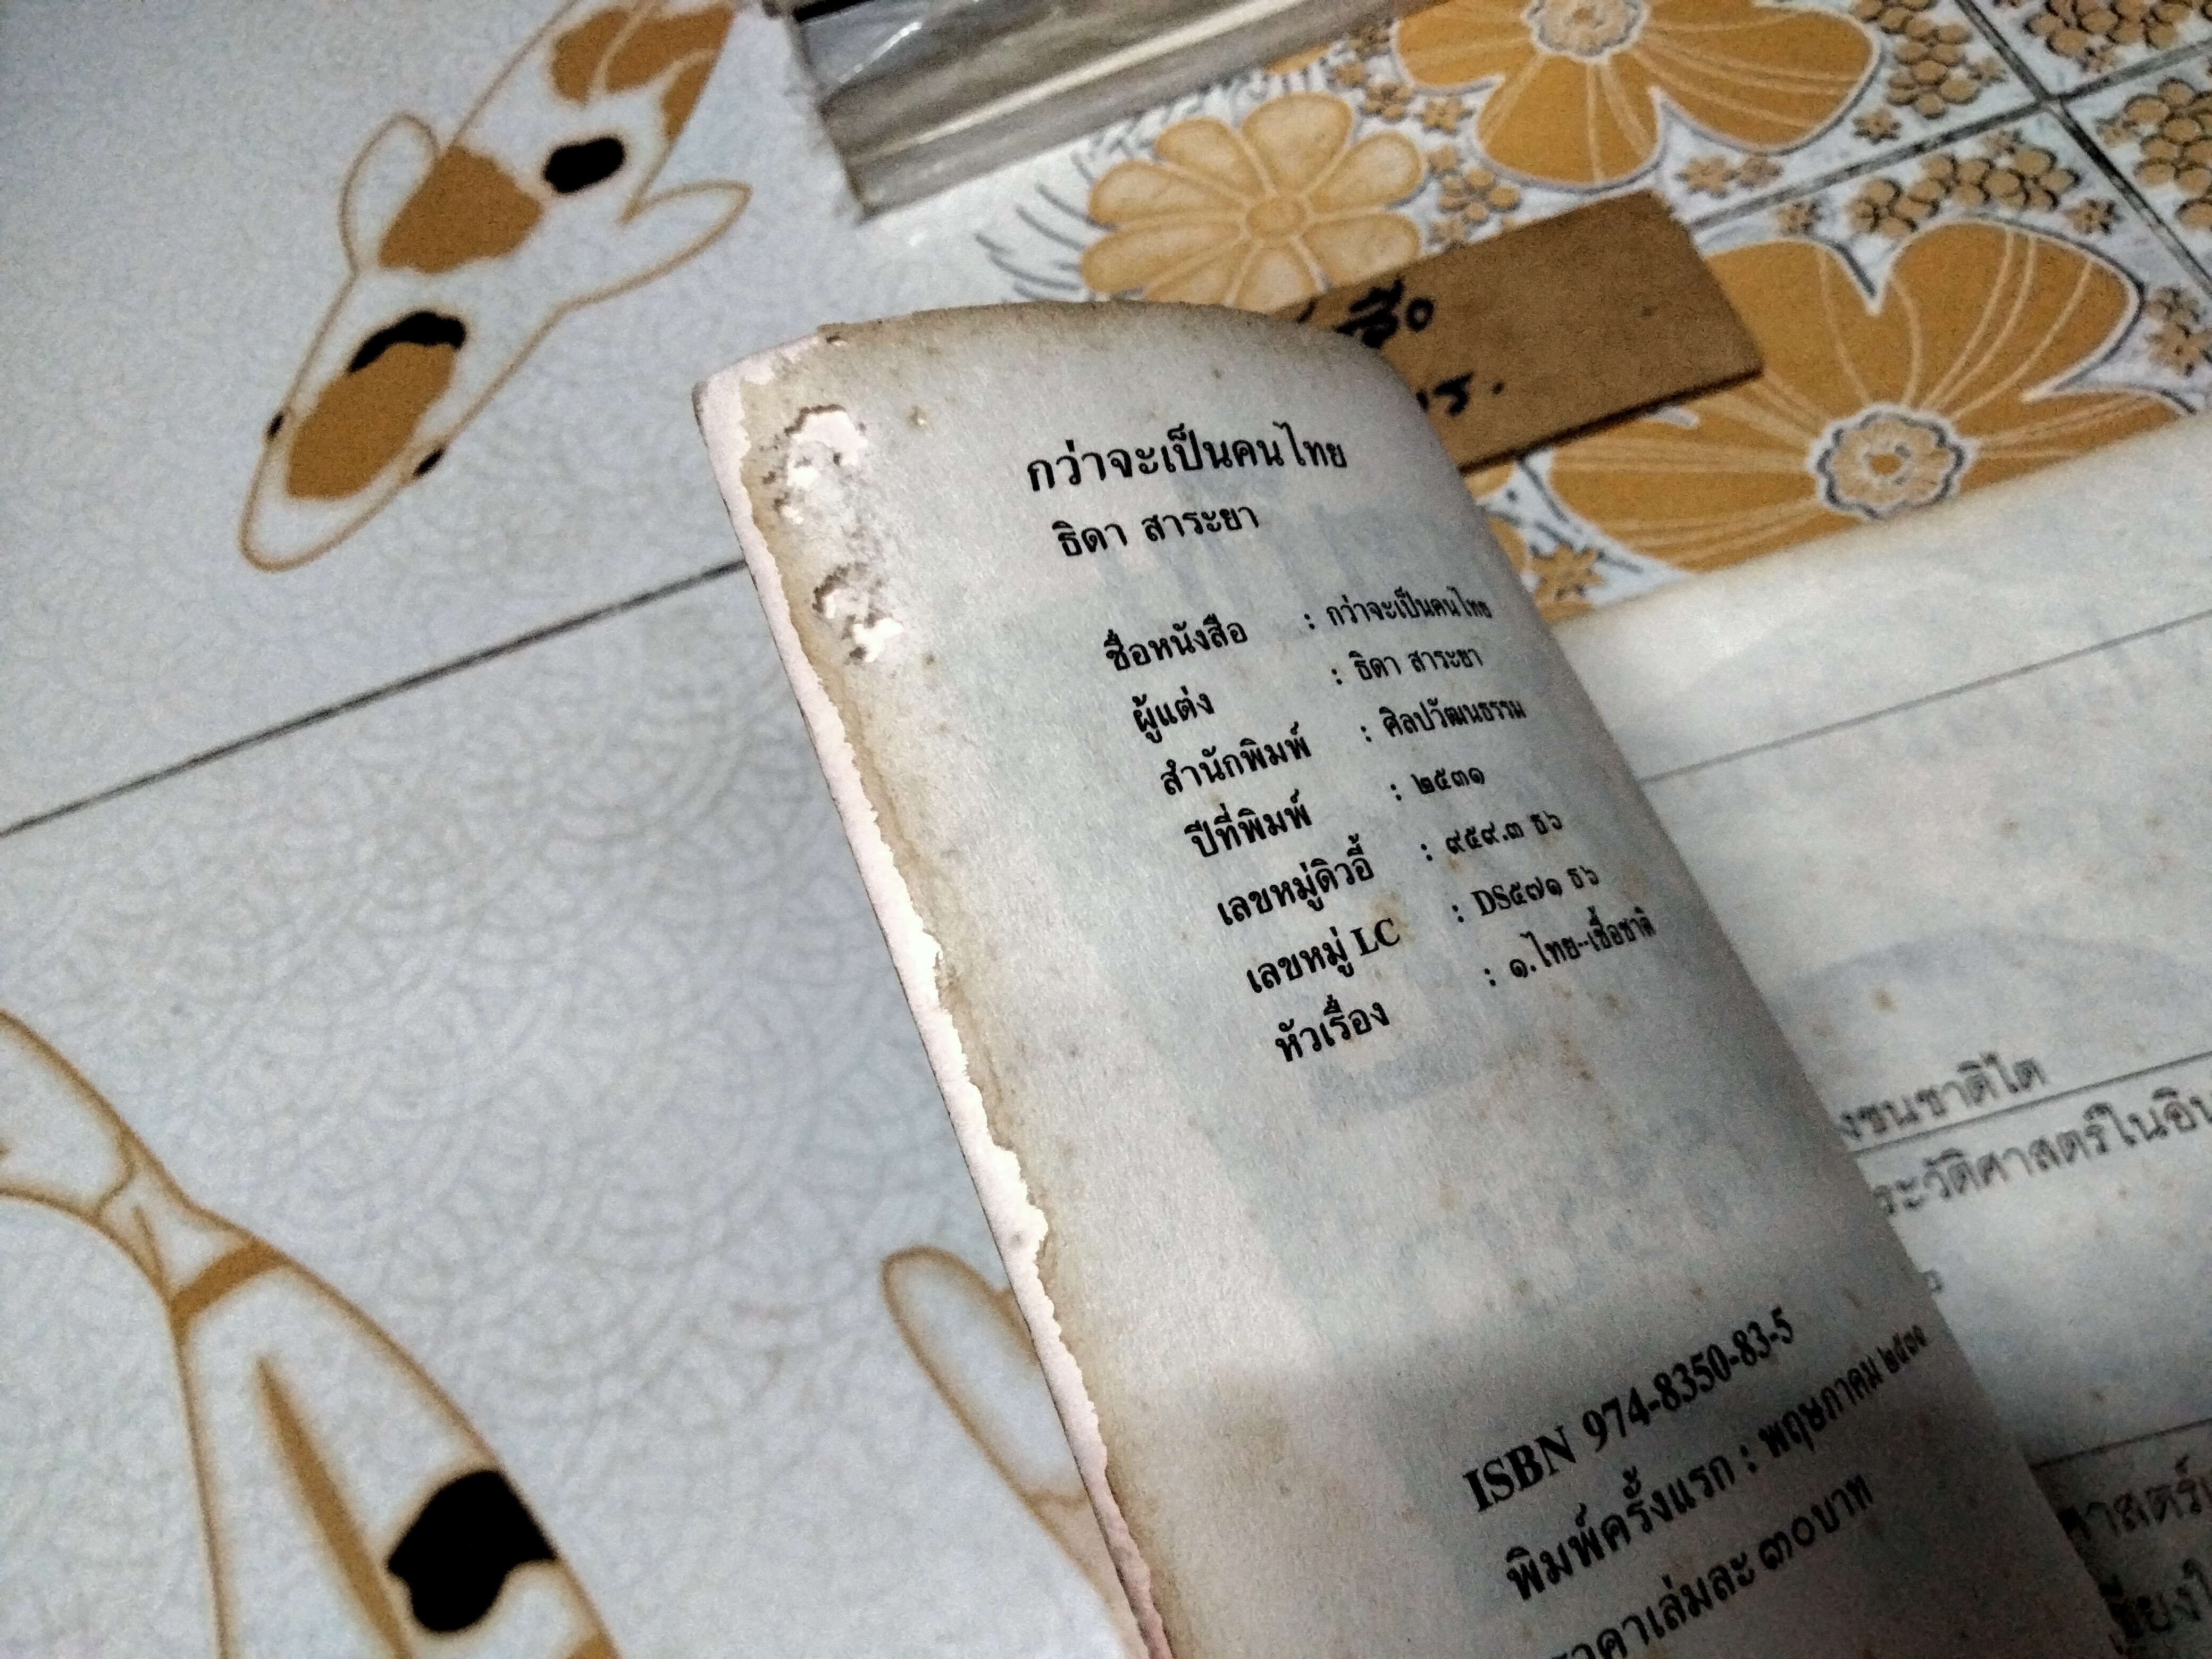 กว่าจะเป็นคนไทย
ธิดา สาระยา
ชื่อหนังสือ : กว่าจะเป็นคนไทย
ผู้แต่ง : ธิดา สาระยา
สำนักพิมพ์ : ศิลปวัฒนธรรม
ปีที่พิมพ์ : ๒๕๓๑
เลขหมู่ดิวอี้ : ๙๕๙.๓ ธ๖
เลขหมู่ LC : DS๕๗๑ ธ๖
หัวเรื่อง : ๑.ไทย--เชื้อชาติ
ISBN 974-8350-83-5
พิมพ์ครั้งแรก : พฤษภาคม
ราคาเล่มละ ๓๐บาท
งชนชาติไต
ระวัติศาสตร์ในอิน
าสตร์